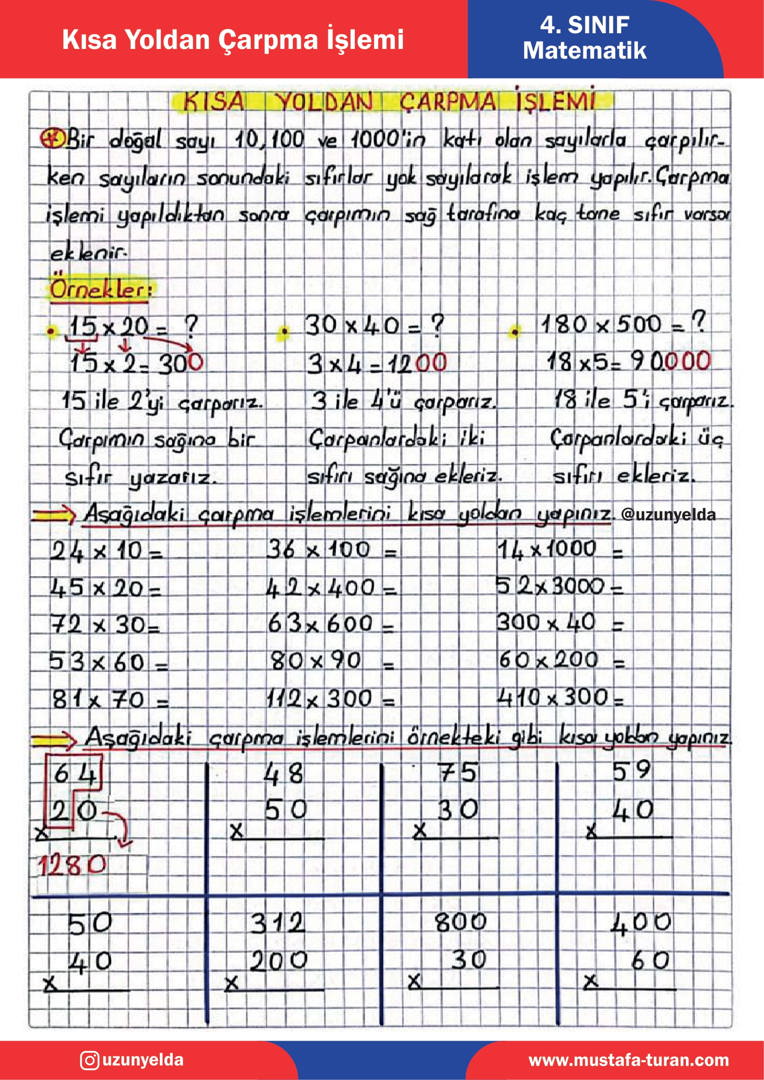 Kısa Yoldan Çarpma İşlemi
4. SINIF
Matematik
KISA YOLDAN ÇARPMA İŞLEMİ
Bir doğal sayı 10,100 ve 1000'in katı olan sayılarla çarpılır-
ken sayıların sonundaki sıfırlar yok sayılarak işlem yapılır. Çarpma
işlemi yapıldıktan sonra çarpımın sağ tarafına kaç tane sıfır varsa
eklenir.
Örnekler:
• 15 x 20 = ? • 30 x 40 = ? • 180 x 500 = ?
15 x 2 = 300 3 x 4 = 1200 18 x 5 = 90.000
15 ile 2'yi çarparız. 3 ile 4'ü çarparız. 18 ile 5'i çarparız.
Çarpımın sağına bir Çarpanlardaki iki Çarpanlardaki üç
sıfır yazarız. sıfırı sağına ekleriz. sıfırı ekleriz.
Aşağıdaki çarpma işlemlerini kısa yoldan yapınız. @uzunyelda
24 x 10 = 36 x 100 = 14 x 1000 =
45 x 20 = 42 x 400 = 52 x 3000 =
72 x 30 = 63 x 600 = 300 x 40 =
53 x 60 = 80 x 90 = 60 x 200 =
81 x 70 = 112 x 300 = 410 x 300 =
Aşağıdaki çarpma işlemlerini örnekteki gibi kısa yoldan yapınız
64 48 75 59
20 50 30 40
x x x x
1280
50 312 800 400
40 200 30 60
x x x x
uzunyelda
www.mustafa-turan.com